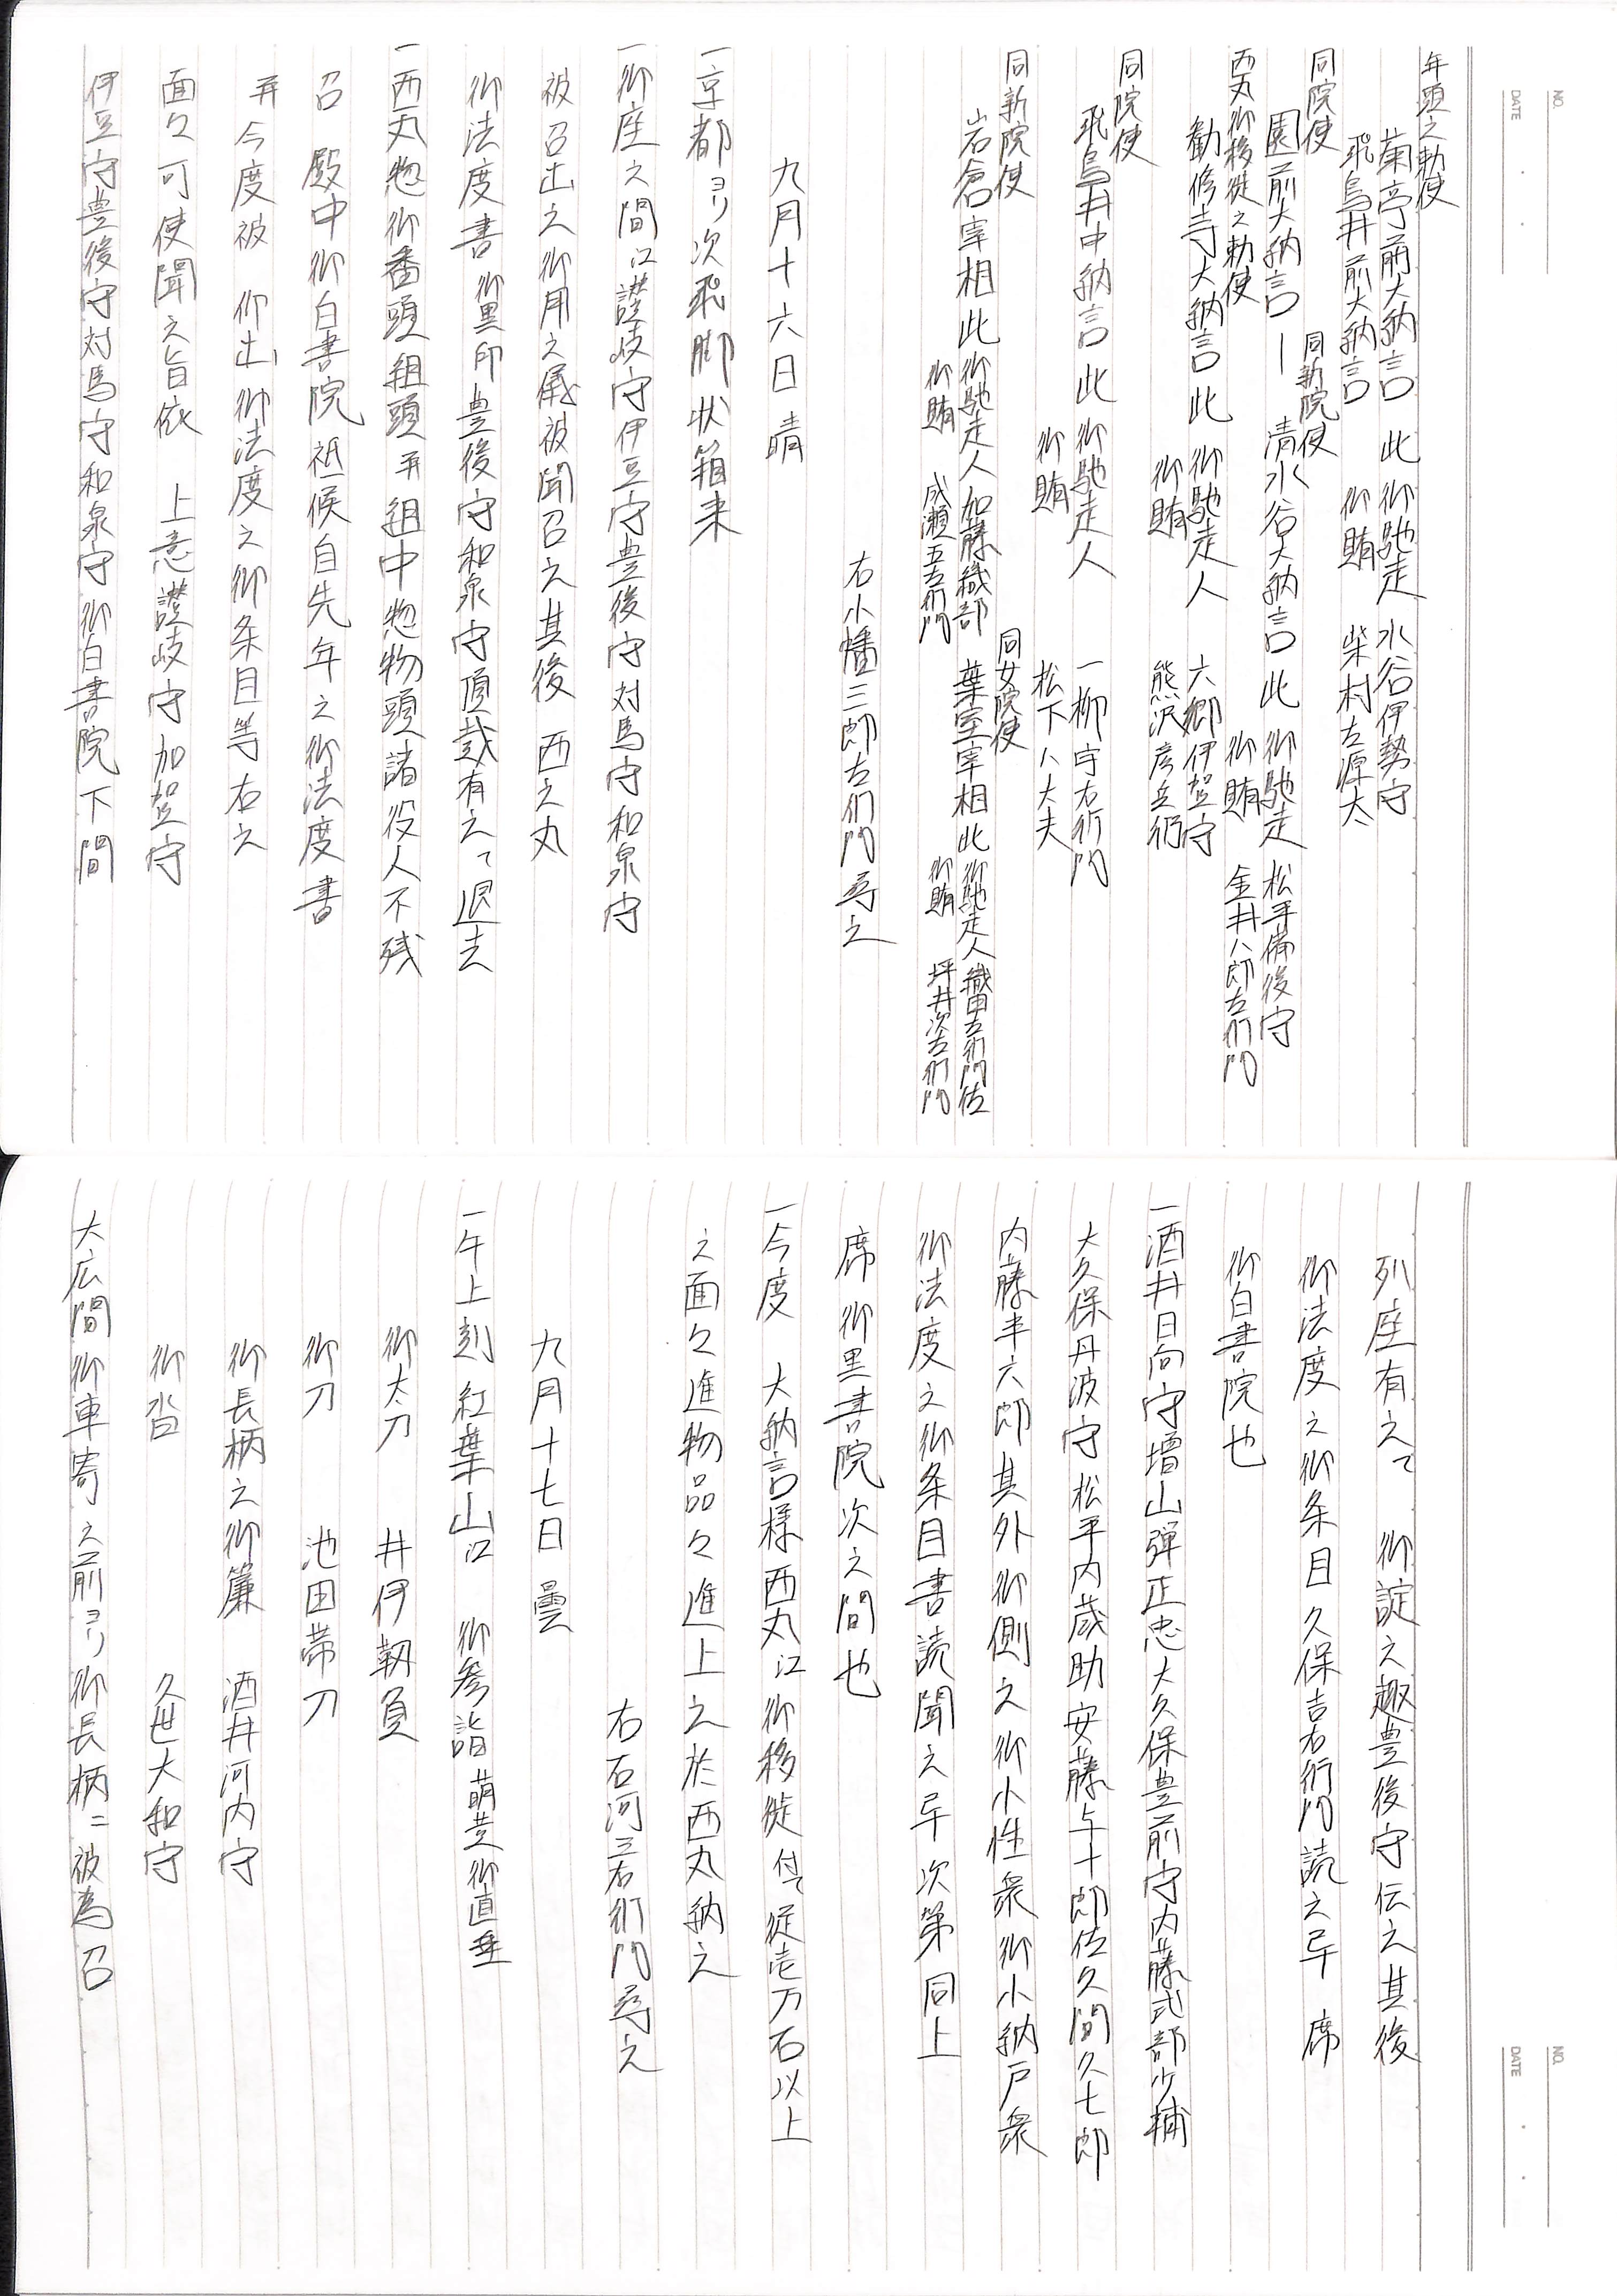 NO.
DATE
年頭之勅使
菊亭前大納言 此 御馳走 水谷伊勢守
飛鳥井前大納言 御賄 柴村左源太
同院使 同新院使
園前大納言 ー 清水谷大納言 此 御馳走 松平備後守
御賄 金井八郎左衛門
西丸御移徙之勅使
勧修寺大納言 此 御馳走人 六郷伊賀守
御賄 熊沢彦兵衛
同院使
飛鳥井中納言 此 御馳走人 一柳宇右衛門
御賄 松下八大夫
同新院使 同女院使
岩倉宰相 此 御馳走人 加藤織部 葉室宰相 此 御馳走人 織田左衛門佐
御賄 成瀬五左衛門 御賄 坪井次右衛門
右小幡三郎左衛門尋之
九月十六日晴
一京都ヨリ次飛脚状箱来
一御座之間江讃岐守伊豆守豊後守対馬守和泉守
被召出之御用之儀被聞召之其後 西之丸
御法度書 御黒印 豊後守和泉守頂戴有之て退去
一西丸惣御番頭組頭并組中惣物頭諸役人不残
召 殿中御白書院祗候自先年之御法度書
并今度被 仰出御法度之御条目等右之
面々可使聞之旨依 上意讃岐守加賀守
伊豆守豊後守対馬守和泉守御白書院下間
NO.
DATE
列座有之て 御諚之趣豊後守伝之其後
御法度之御条目久保吉右衛門読之畢 席
御白書院也
一酒井日向守増山弾正忠大久保豊前守内藤式部少輔
大久保丹波守松平内蔵助安藤与十郎佐久間久七郎
内藤半六郎其外御側之御小性衆御小納戸衆
御法度之御条目書読聞之畢次第同上
席 御黒書院次之間也
一今度 大納言様西丸江御移徙付て従壱万石以上
之面々進物品々進上之於西丸納之
右石河三右衛門尋之
九月十七日 曇
一午上刻紅葉山江 御参詣 萌黄御直垂
御太刀 井伊靱負
御刀 池田帯刀
御長柄之御簾 酒井河内守
御沓 久世大和守
大広間御車寄之前ヨリ御長柄ニ被為召